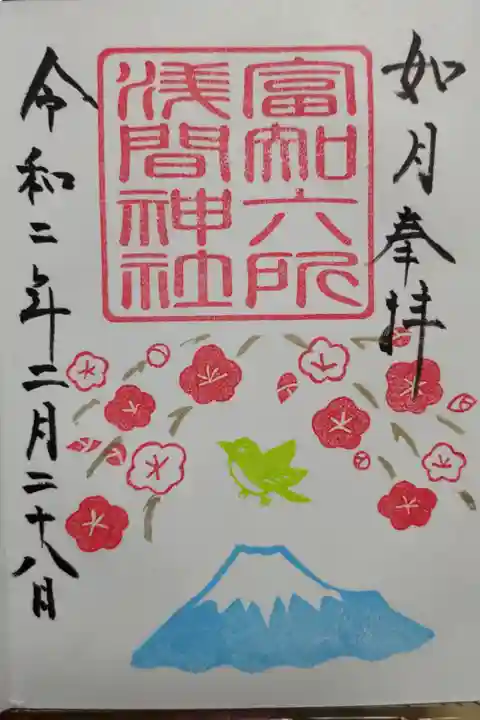 如月奉拝
富知六所
浅間神社
令和二年二月二十八日